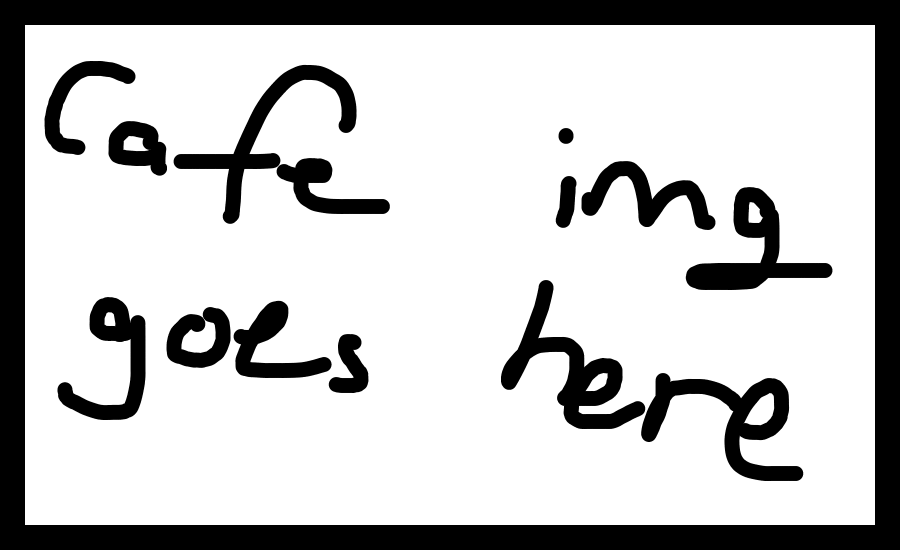 cafe img
goes here